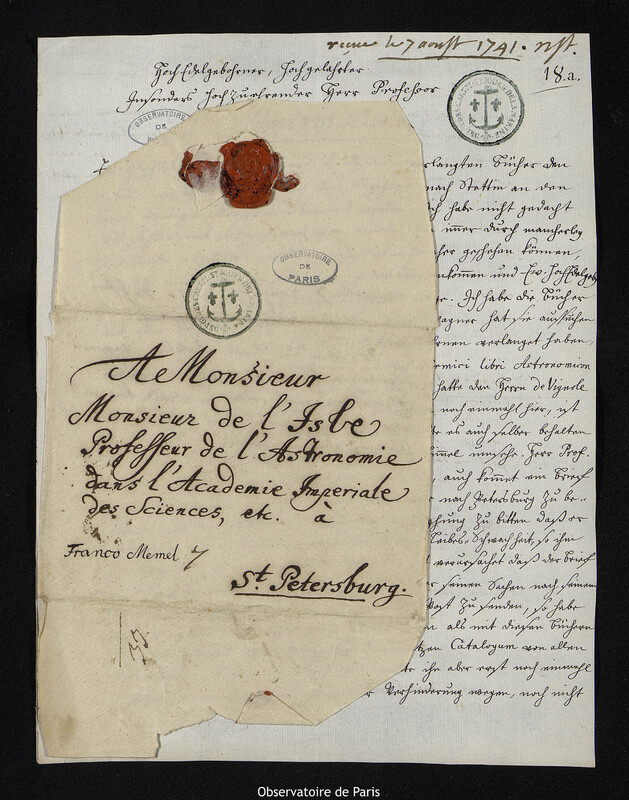 reçue le 7 aoust 1741. nst.
18.a.
Hoch Edelgebohrner, Hochgelahrter
Insonders Hoch zuehrender Herr Professoor
OBSERVATOIRE DE
OBSERVATOIRE DE PARIS
erlangten Bücher den
nach Stettin an den
ich habe nicht gedacht
immer durch mancherley
her geschehen können,
nkommen und Ew. HochEdelgeb
Ich habe die Bücher
agner hat sie aussuchen
verlanget haben,
rmici libri Astronomicon
hatte den Herrn de Vignole
noch einmahl hier, ist
es auch selber behalten
Herr Prof.
auch kommet ein Brief
nach Petersburg zu be-
hung zu bitten daß er
Leibes-Schwachheit, so ihn
verursachet daß der Brief
seinen Sachen nach seinem
Post zu senden, so habe
als mit diesen Büchern
tzen Catalogum von allen
te ihn aber erst noch einmahl
Verhinderung wegen, noch nicht
A Monsieur
Monsieur de l'Isle
Professeur de l'Astronomie
dans l'Academie Imperiale
des Sciences, etc. à
Franco Memel
St. Petersburg.
Observatoire de Paris